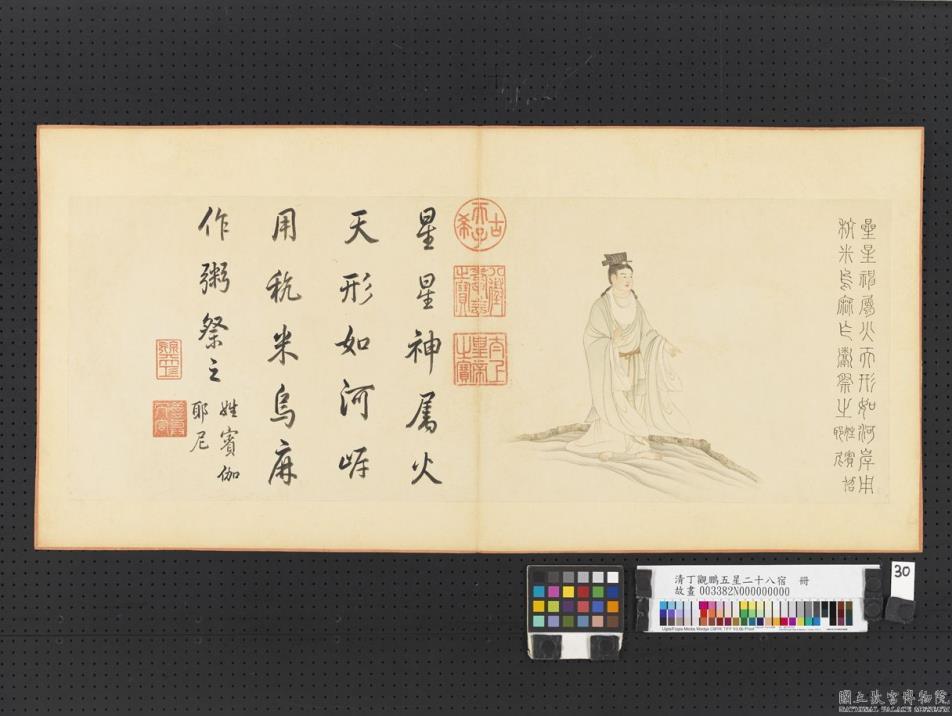 星星神屬火天形如河岸用
秔米烏麻作粥祭之姓賓伽
耶尼
古希天子
八徵耄念之寶
太上皇帝之寶
星星神屬火
天形如河𡶜
用秔米烏麻
作粥祭之姓賓伽
耶尼
清丁觀鵬五星二十八宿 冊
故畫 003382N000000000
30
國立故宮博物院
NATIONAL PALACE MUSEUM